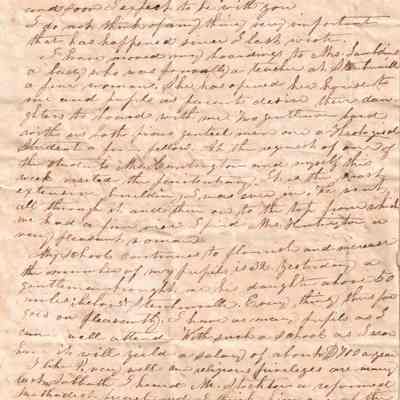 and soon I expect to be with you
I do not think of any thing very important
that has happened since I last wrote.
I have moved my boarding to Mrs.
a lady who was formerly a teacher at Steubenville
a fine woman. She has opened her house to
me and pupils as parents desire their daugh
ters to board with me two gentlemen board
with us both pious genteel men one a Theological
student a fine fellow. At the request of one of
the students Mr. and myself this
week visited the penitentiary. It is the most
extensive building I was ever in. We went
all through it and then on to the top from which
we had a fine view I find Mrs. a
very pleasant woman
My school continues to flourish and increase
the number of my pupils is 32. Yesterday a
gentleman brought us his daughter about 50
miles below Steubenville. Every thing thus far
goes on pleasantly. I have as many pupils as I
can well attend. With such a school as I can
it will yield a salary of about D700 a year
I like very well our religious privileges are many
last Sabbath I heard Mr. Stockton a reformed
Methodist